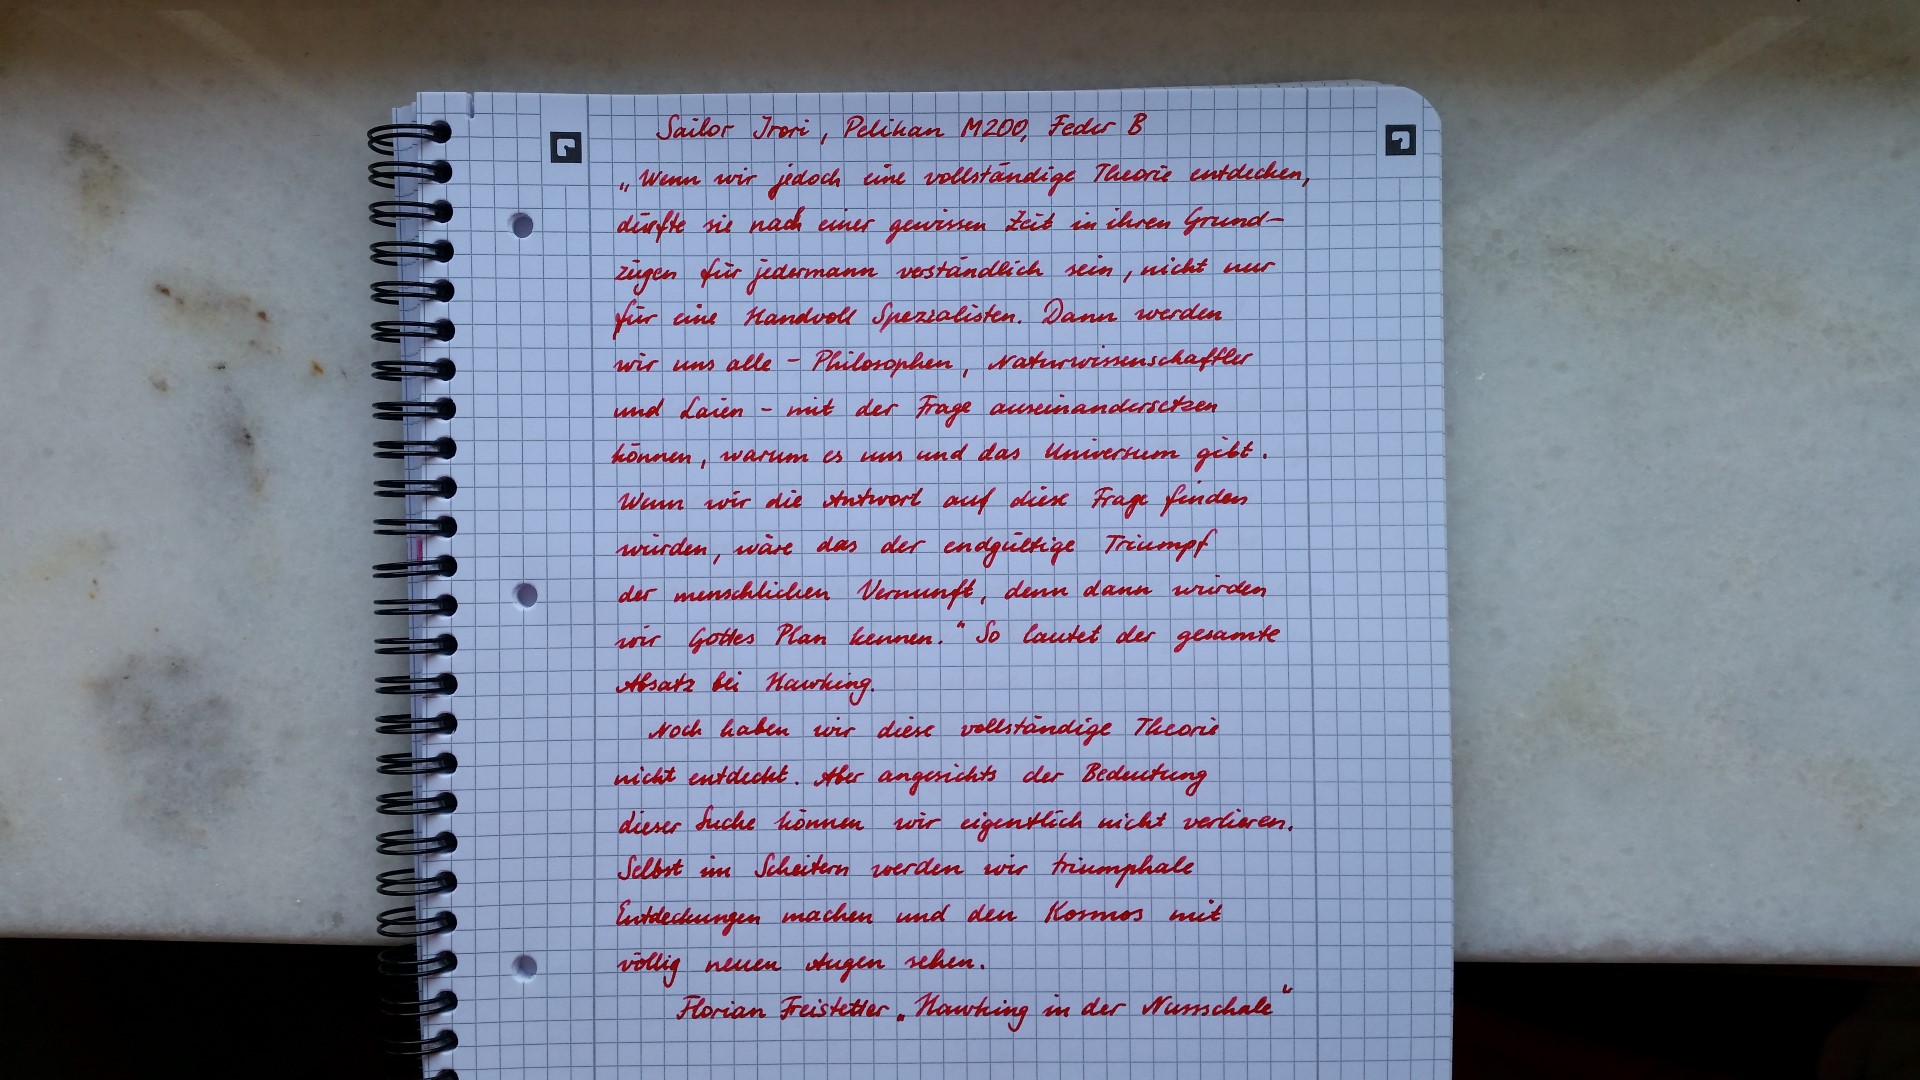 Sailor Irori, Pelikan M200, Feder B
„Wenn wir jedoch eine vollständige Theorie entdecken,
dürfte sie nach einer gewissen Zeit in ihren Grund-
zügen für jedermann verständlich sein, nicht nur
für eine Handvoll Spezialisten. Dann werden
wir uns alle - Philosophen, Naturwissenschaftler
und Laien - mit der Frage auseinandersetzen
können, warum es uns und das Universum gibt.
Wenn wir die Antwort auf diese Frage finden
würden, wäre das der endgültige Triumpf
der menschlichen Vernunft, denn dann würden
wir Gottes Plan kennen." So lautet der gesamte
Absatz bei Hawking.
Noch haben wir diese vollständige Theorie
nicht entdeckt. Aber angesichts der Bedeutung
dieser Suche können wir eigentlich nicht verlieren.
Selbst im Scheitern werden wir triumphale
Entdeckungen machen und den Kosmos mit
völlig neuen Augen sehen.
Florian Freistetter „Hawking in der Nussschale"